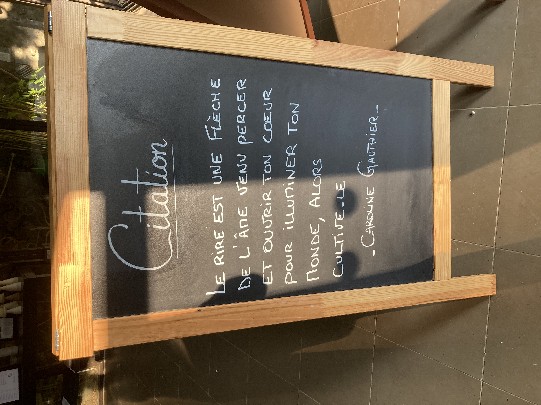 Citation
LE RIRE EST UNE FLÈCHE
DE L'ÂME VENU PERCER
ET OUVRIR TON COEUR
POUR ILLUMINER TON
MONDE, ALORS
CULTIVE-LE
- CAROLINE GAUTHIER -